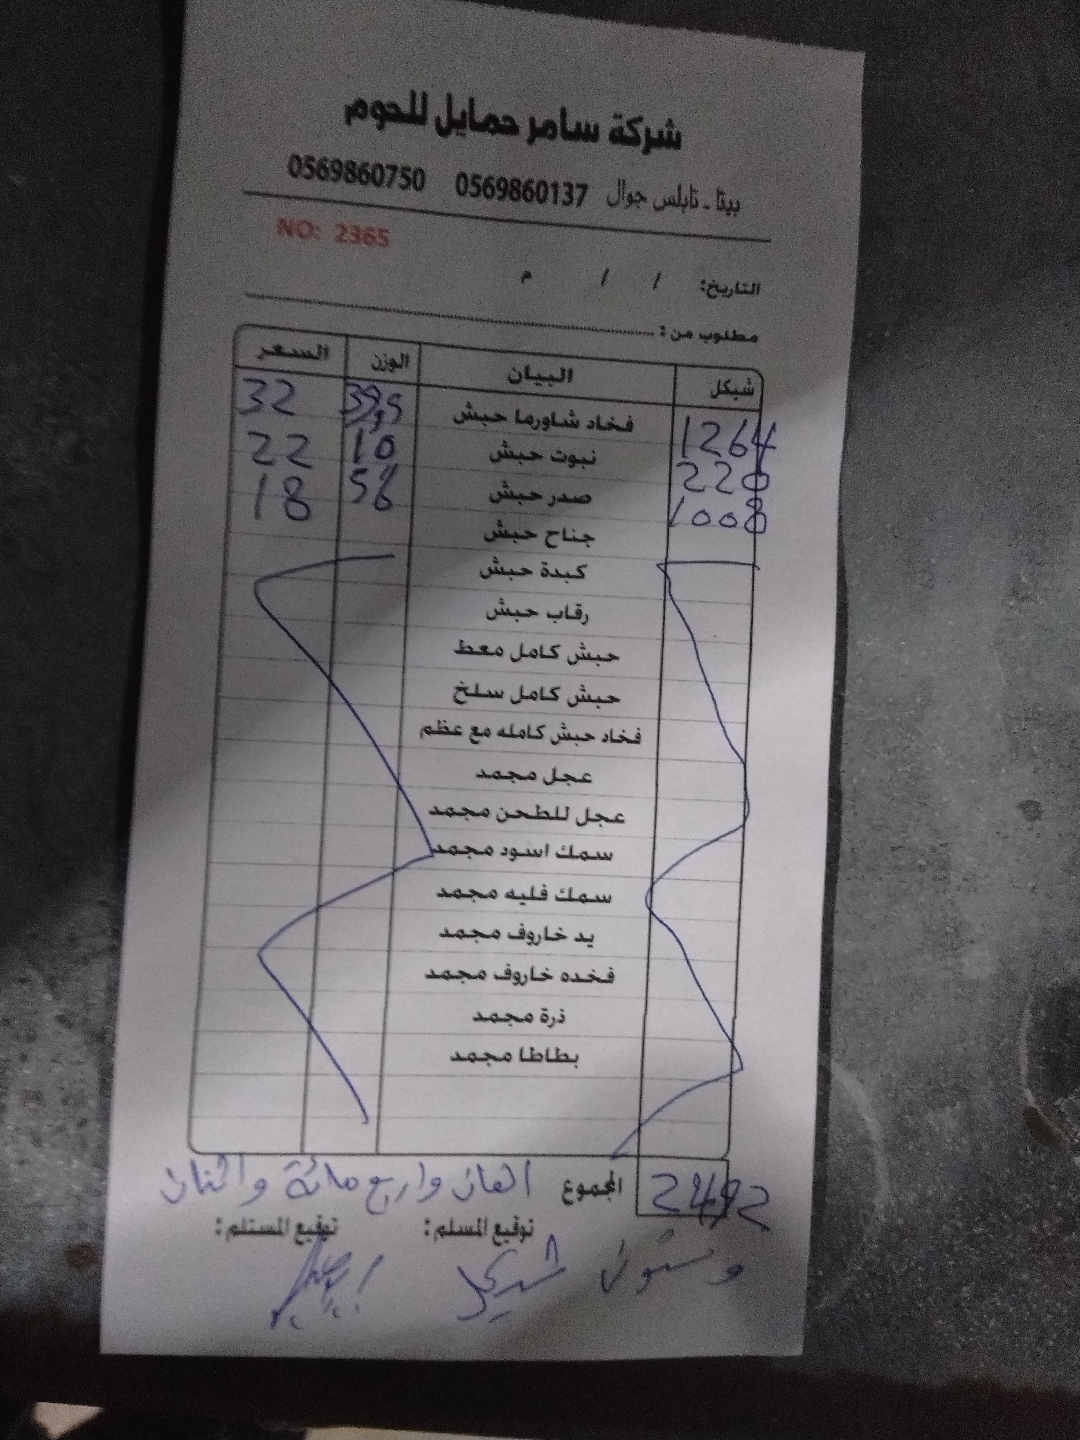 شركة سامر حمايل للحوم
بيتا - نابلس جوال 0569860137 0569860750
NO: 2365
التاريخ: / / م
مطلوب من :
شيكل البيان الوزن السعر
1264 فخاد شاورما حبش 39,5 32
220 نبوت حبش 10 22
1008 صدر حبش 56 18
جناح حبش
كبدة حبش
رقاب حبش
حبش كامل معط
حبش كامل سلخ
فخاد حبش كامله مع عظم
عجل مجمد
عجل للطحن مجمد
سمك اسود مجمد
سمك فليه مجمد
يد خاروف مجمد
فخده خاروف مجمد
ذرة مجمد
بطاطا مجمد
2492 المجموع الفان واربع مائة واثنان
توقيع المسلم : توقيع المستلم :